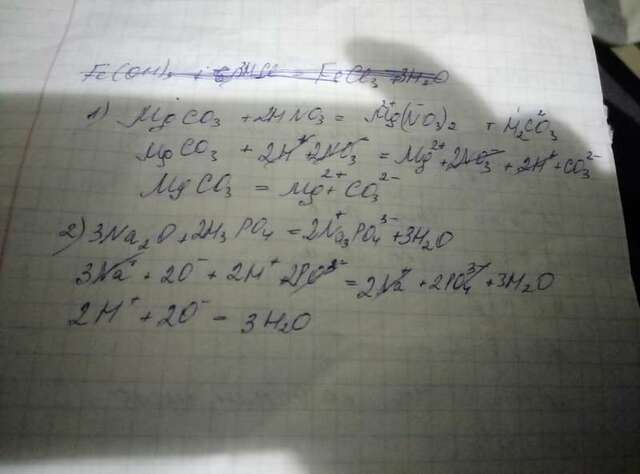 1) MgCO₃ + 2HNO₃ = Mg²⁺(NO₃⁻)₂ + H₂⁺CO₃²⁻
MgCO₃ + 2H⁺ + 2NO₃⁻ = Mg²⁺ + 2NO₃⁻ + 2H⁺ + CO₃²⁻
MgCO₃ = Mg²⁺ + CO₃²⁻
2) 3Na₂O + 2H₃PO₄ = 2Na₃⁺PO₄³⁻ + 3H₂O
3Na⁺ + 2O⁻ + 2H⁺ + = 2Na⁺ + 2PO₄³⁻ + 3H₂O
2H⁺ + 2O⁻ = 3H₂O